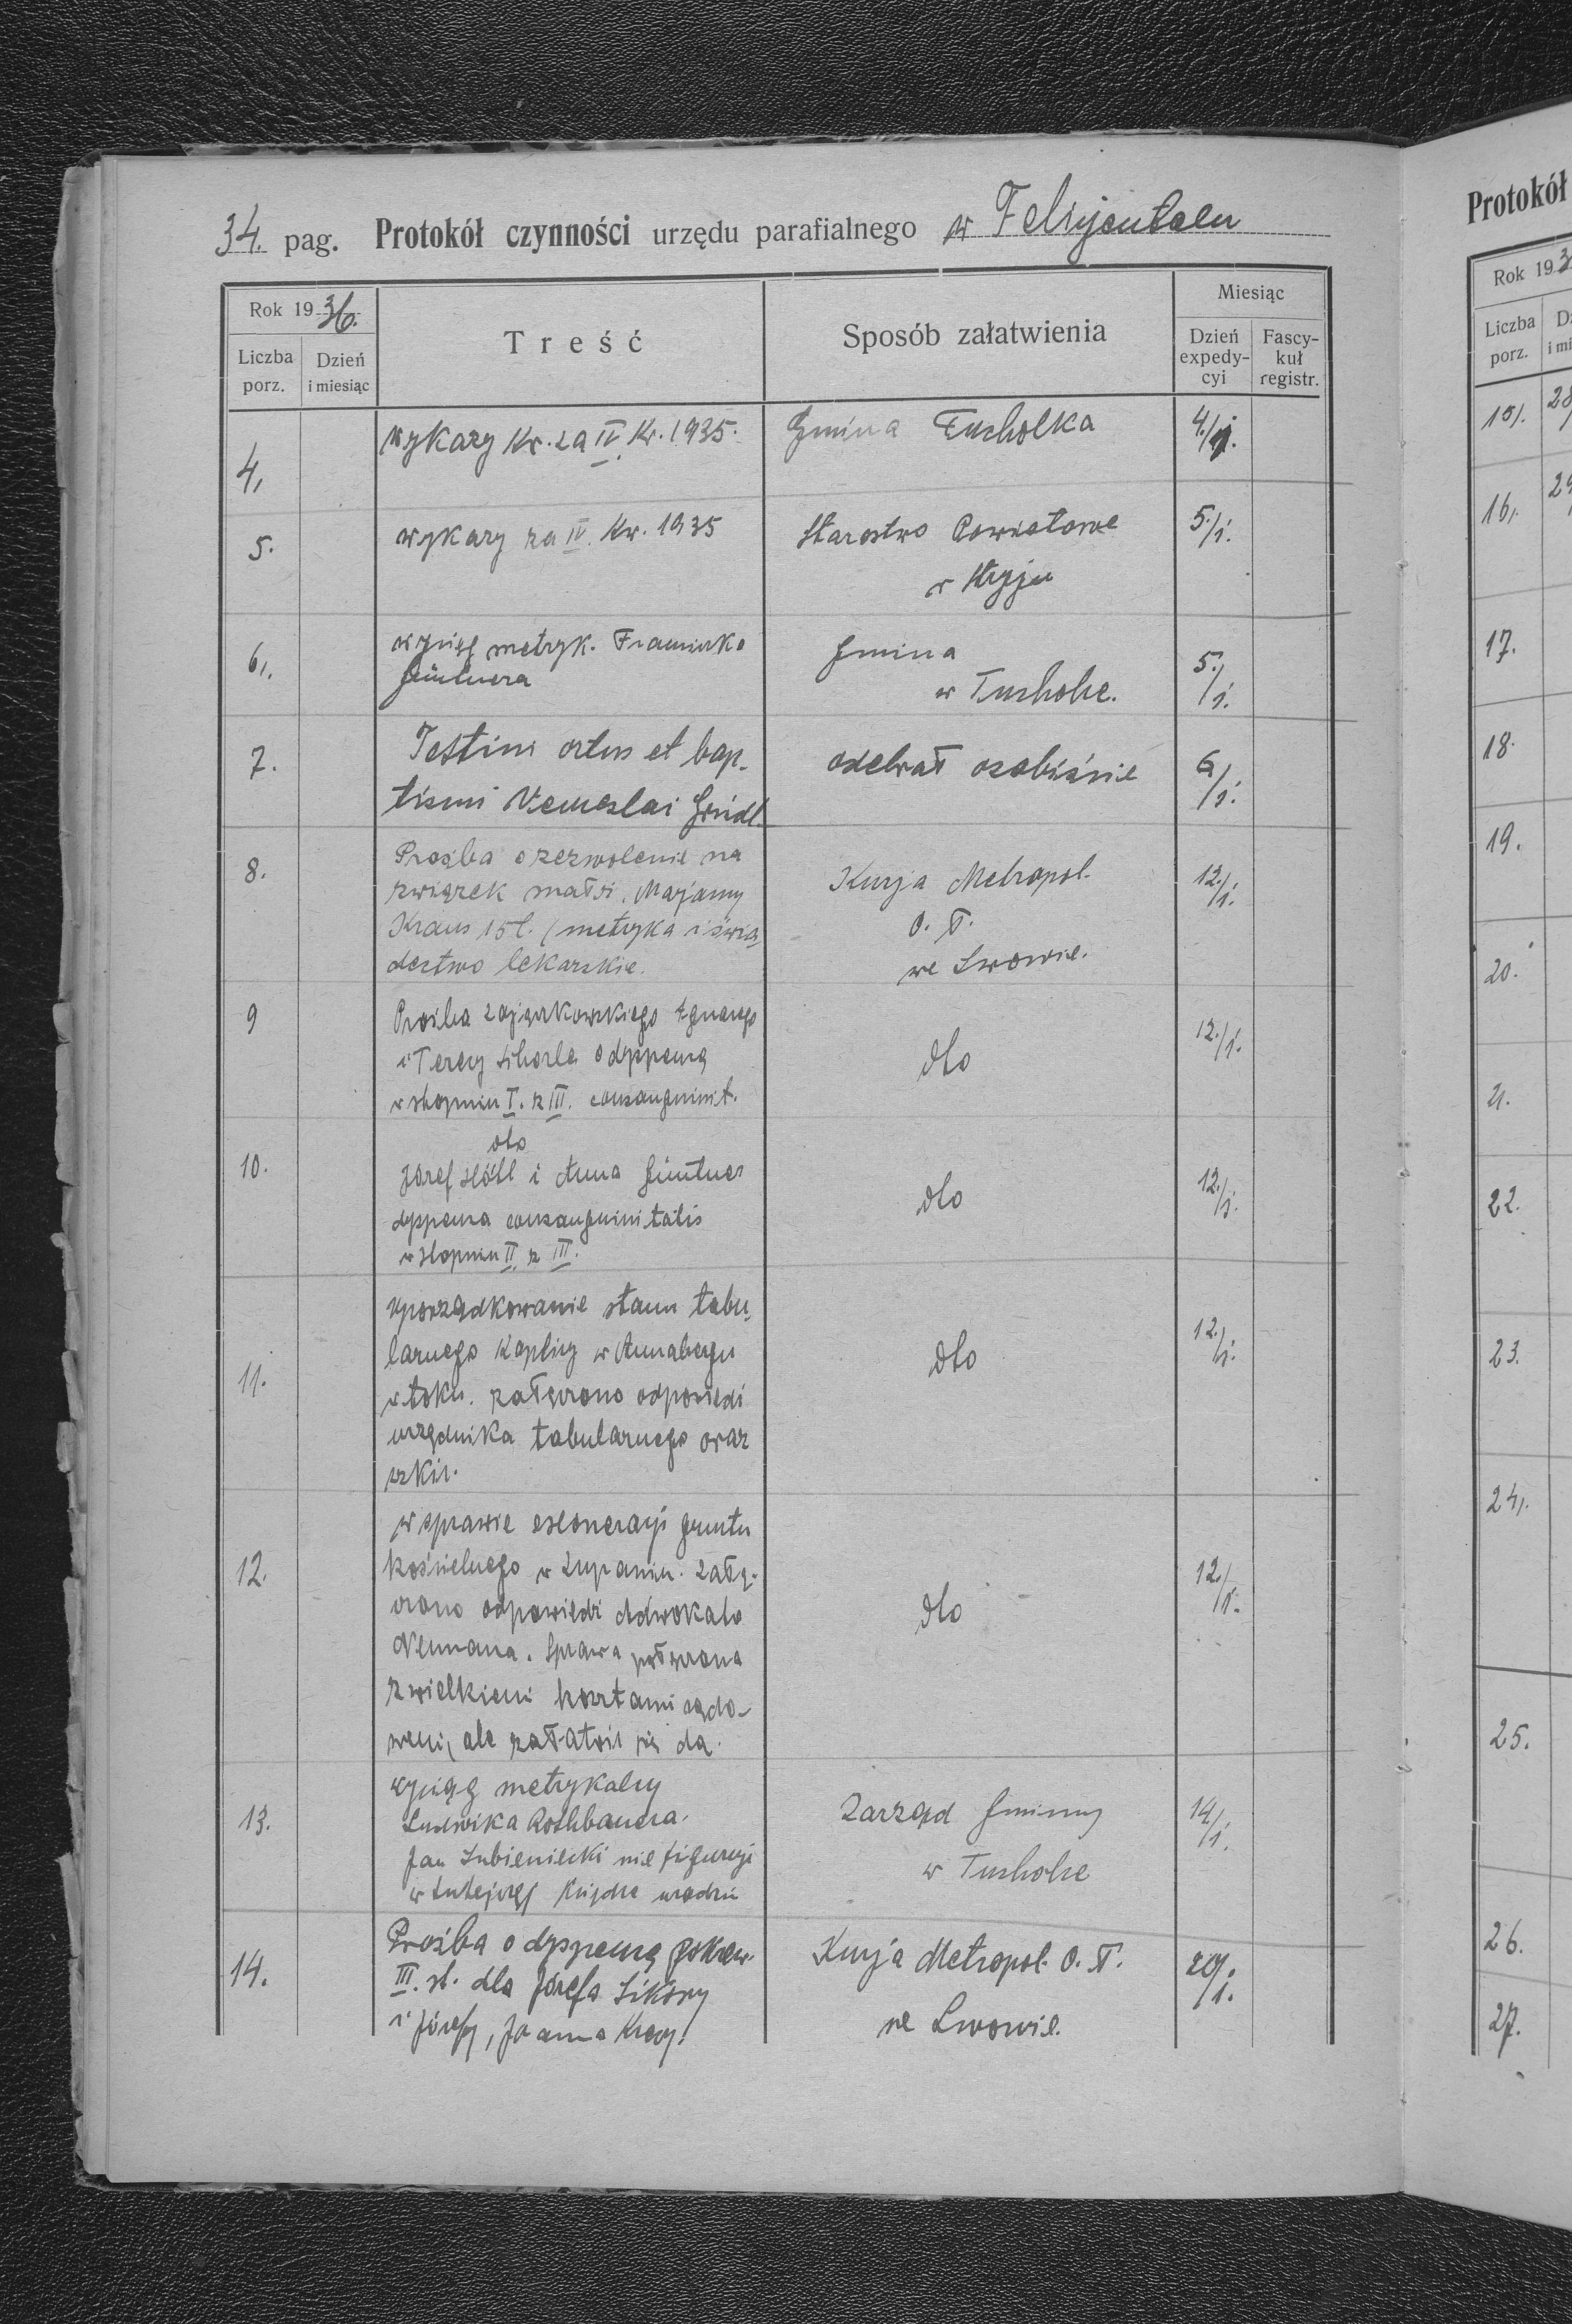 34. pag. Protokół czynności urzędu parafialnego w Felizjentalu
Rok 1936.
Liczba porz.
Dzień i miesiąc
Treść
Sposób załatwienia
Miesiąc
Dzień expedycyi
Fascykuł registr.
4, wykazy Kr. za IV. Kr. 1935. Gmina Tucholka 4./1.
5. wykazy za IV. Kw. 1935 Starostwo Powiatowe 5./1.
w Stryju
6,. wyciąg metryk. Franciszka Gmina 5./1.
Güntnera w Tucholce.
7. Testim ortus et bap- odebrał osobiście 6/1.
tismi Venceslai Gründl.
8. Prośba o zezwolenie na Kurja Metropol. 12./1.
związek małż. Marjanny O. Ł.
Kraus 15 l. (metryka i świa- we Lwowie.
dectwo lekarskie.
9 Prośba Zajączkowskiego Ignacego dto 12./1.
i Teresy o dyspensę
w stopniu I. z III. consanguinit.
dto
10. Józef Höll i Anna Güntner dto 12./1.
dyspensa consanguinitatis
w stopniu II. z III.
11. uporządkowanie stanu tabu- dto 12./1.
larnego Kaplicy w Annabergu
w toku. załączono odpowiedź
urzędnika tabularnego oraz
szkic.
12. w sprawie ekstoneracji gruntu dto 12./1.
kościelnego w Żupaniu. Załą-
czono odpowiedź Adwokata
Neumana. Sprawa połączona
z wielkiemi kosztami sądo-
wemi, ale załatwić się da.
13. wyciąg metrykalny Zarząd Gminny 14/1.
Ludwika Rothbauera. w Tucholce
Jan Lubieniecki nie figuruje
w tutejszej Księdze urodzin
14. Prośba o dyspensę pokrew. Kurja Metropol. O. Ł. 20/1.
III. st. dla Józefa Sikory we Lwowie.
i Józefy, Joanna
Protokół
Rok 193
Liczba porz.
15/. 28
16,. 29
17.
18.
19.
20.
21.
22.
23.
24,.
25.
26.
27.